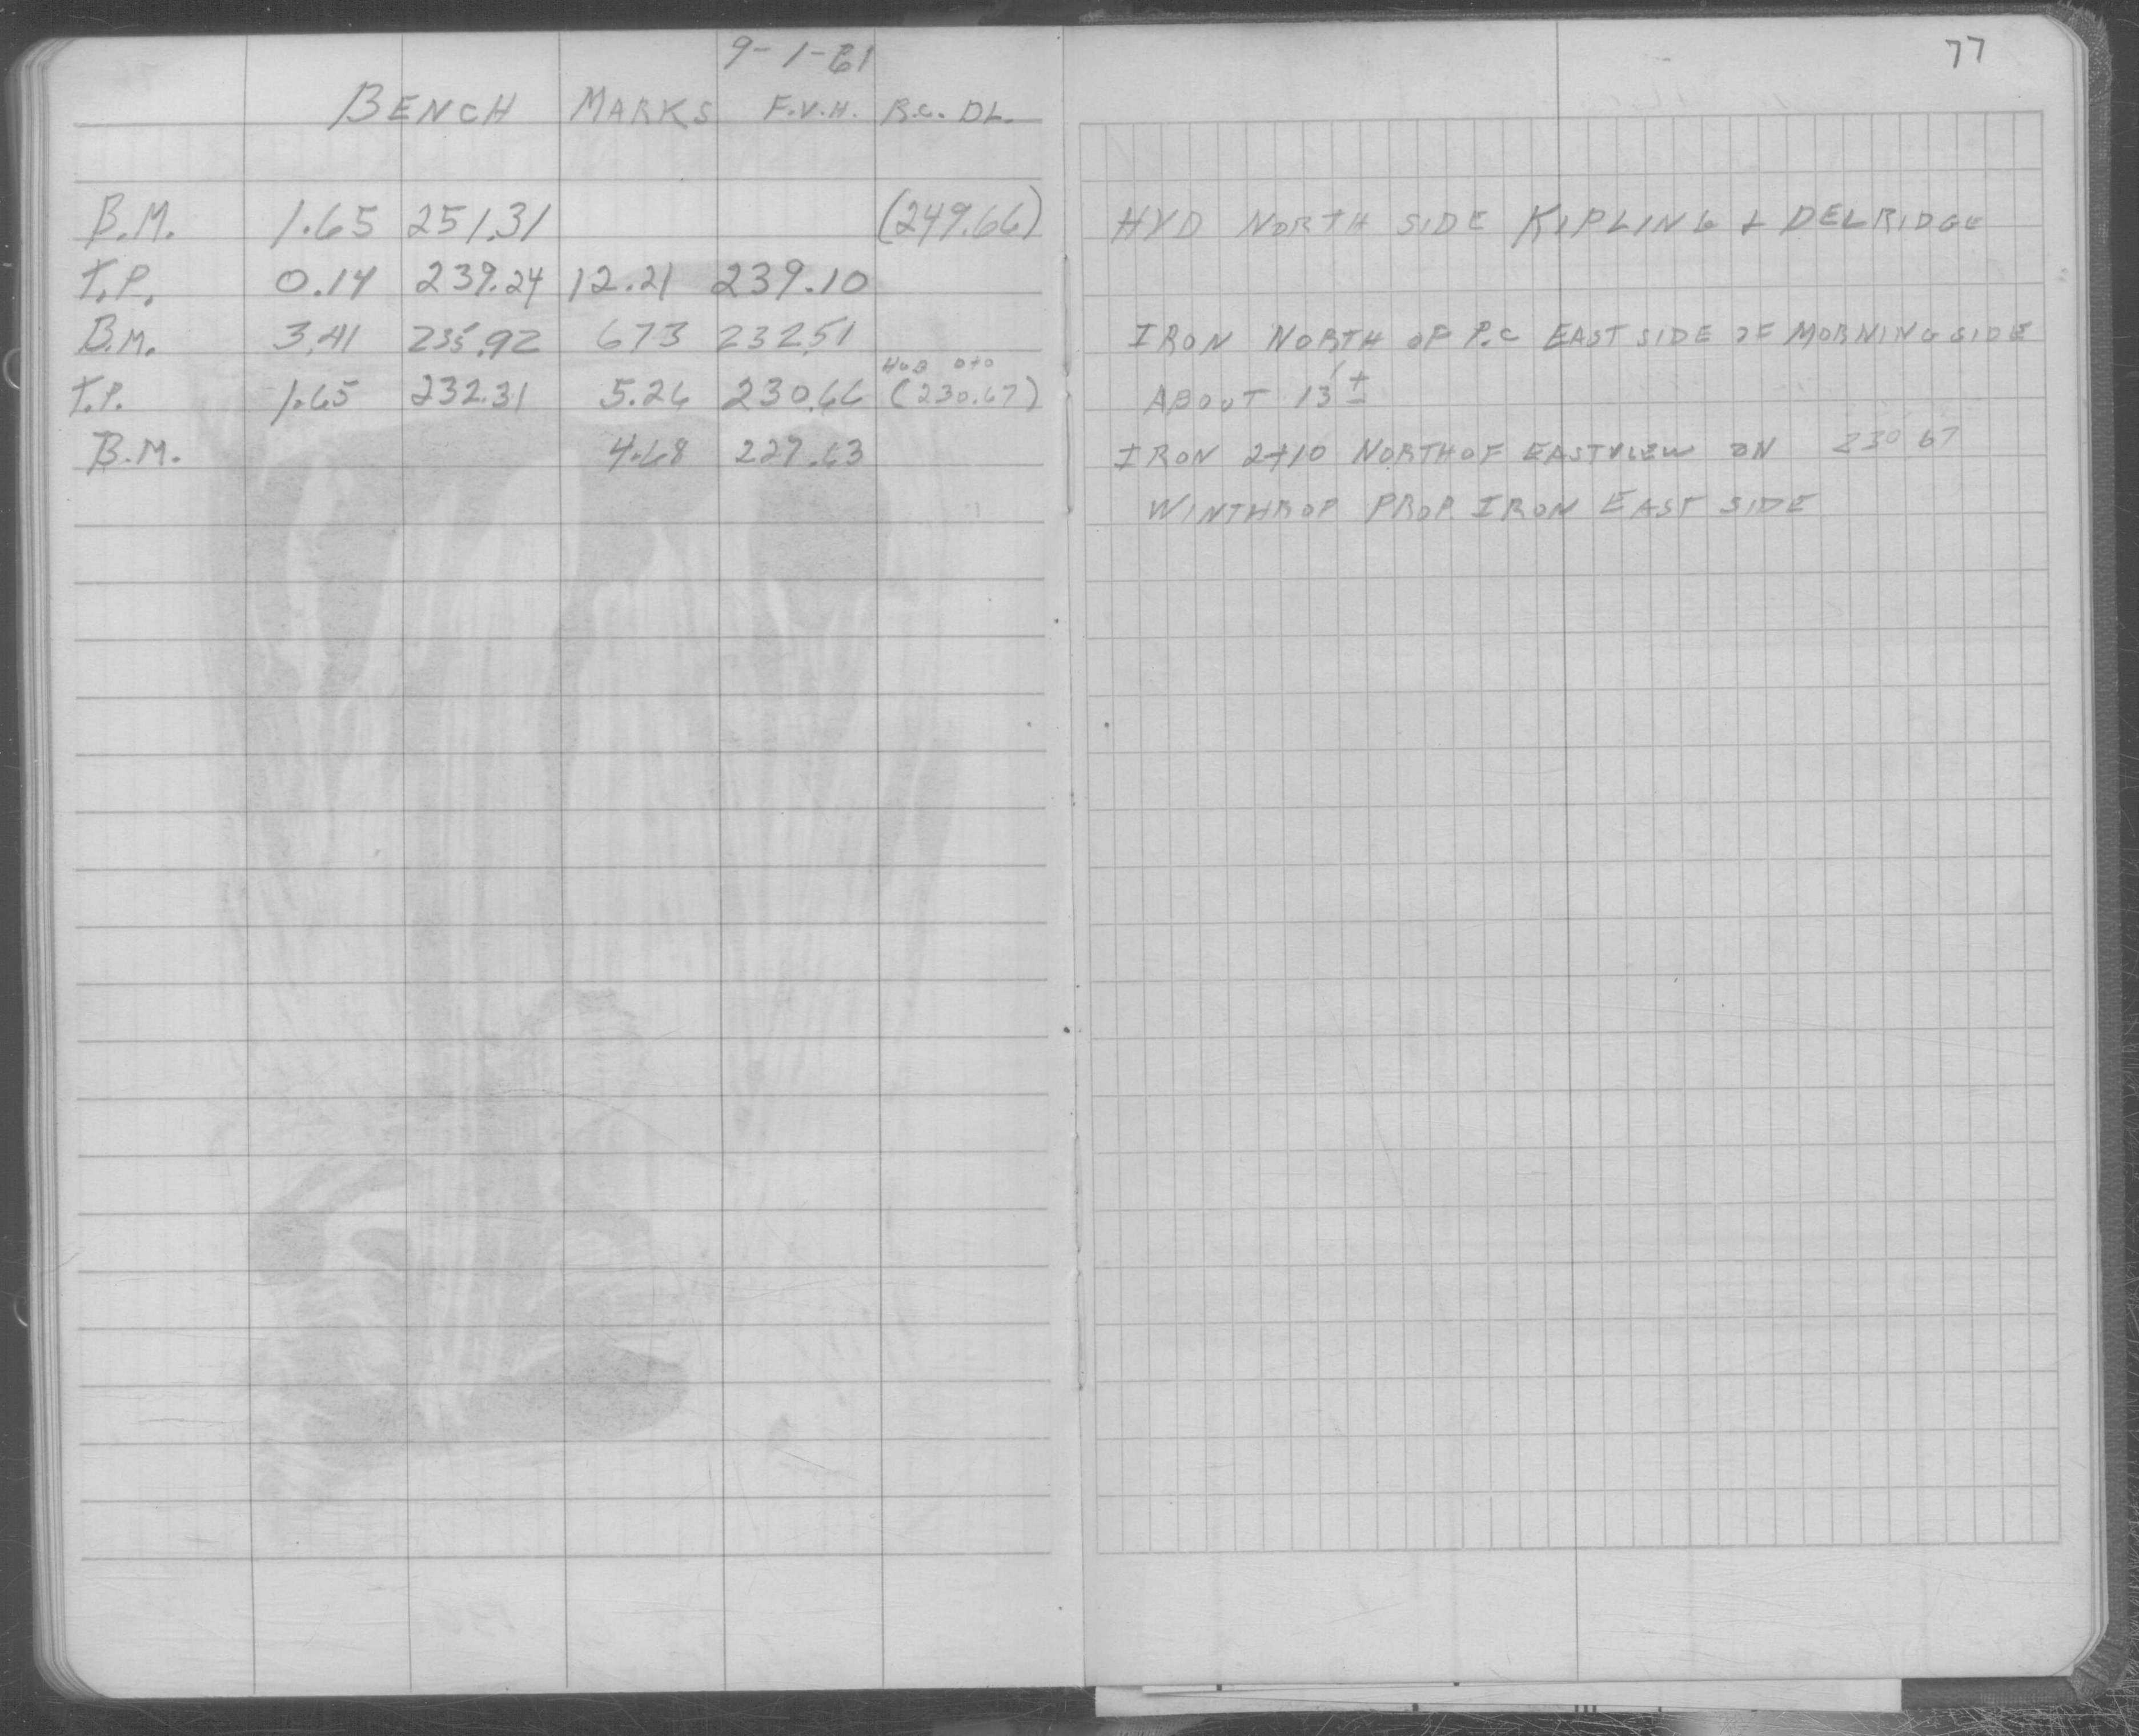 9-1-61
77
BENCH MARKS F.V.H. R.C. DL.
B.M. 1.65 251.31 (249.66) HYD NORTH SIDE KIPLING & DELRIDGE
T.P. 0.14 239.24 12.21 239.10
B.M. 3.41 235.92 673 232.51 IRON NORTH OF P.C EAST SIDE OF MORNINGSIDE
HUB 0+0
T.P. 1.65 232.31 5.26 230.66 (230.67) ABOUT 13' ±
B.M. 4.68 227.63 IRON 2+10 NORTH OF EASTVIEW ON 230 67
WINTHROP PROP. IRON EAST SIDE